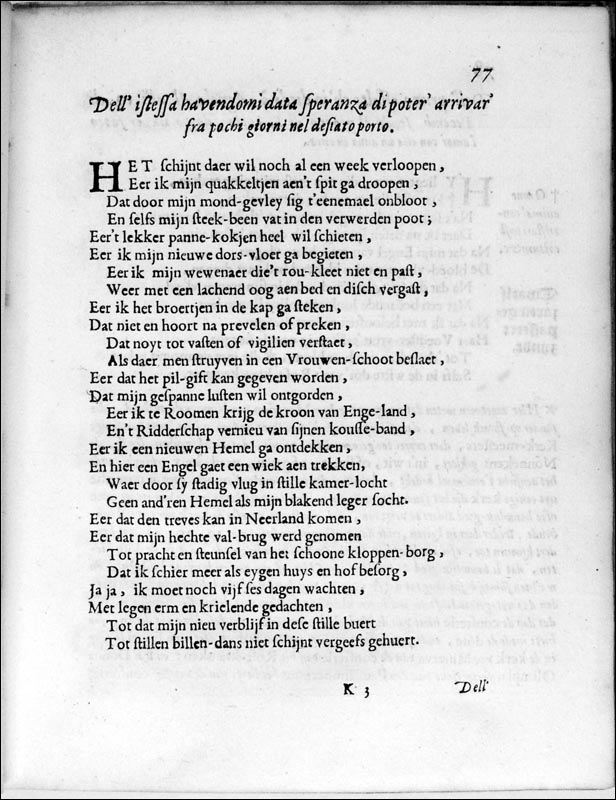 77
Dell' istessa havendomi data speranza di poter' arrivar'
fra pochi giorni nel desiato porto.
HET schijnt daer wil noch al een week verloopen,
Eer ik mijn quakkeltjen aen't spit ga droopen,
Dat door mijn mond-gevley sig t'eenemael onbloot,
En selfs mijn steek-been vat in den verwerden poot;
Eer't lekker panne-kokjen heel wil schieten,
Eer ik mijn nieuwe dors-vloer ga begieten,
Eer ik mijn wewenaer die't rou-kleet niet en past,
Weer met een lachend oog aen bed en disch vergast,
Eer ik het broertjen in de kap ga steken,
Dat niet en hoort na prevelen of preken,
Dat noyt tot vasten of vigilien verstaet,
Als daer men struyven in een Vrouwen-schoot beslaet,
Eer dat het pil-gift kan gegeven worden,
Dat mijn gespanne lusten wil ontgorden,
Eer ik te Roomen krijg de kroon van Enge-land,
En't Ridderschap vernieu van sijnen kousse-band,
Eer ik een nieuwen Hemel ga ontdekken,
En hier een Engel gaet een wiek aen trekken,
Waer door sy stadig vlug in stille kamer-locht
Geen and'ren Hemel als mijn blakend leger socht.
Eer dat den treves kan in Neerland komen,
Eer dat mijn hechte val-brug werd genomen
Tot pracht en steunsel van het schoone kloppen-borg,
Dat ik schier meer als eygen huys en hof besorg,
Ja ja, ik moet noch vijf ses dagen wachten,
Met legen erm en krielende gedachten,
Tot dat mijn nieu verblijf in dese stille buert
Tot stillen billen-dans niet schijnt vergeefs gehuert.
K 3
Dell'